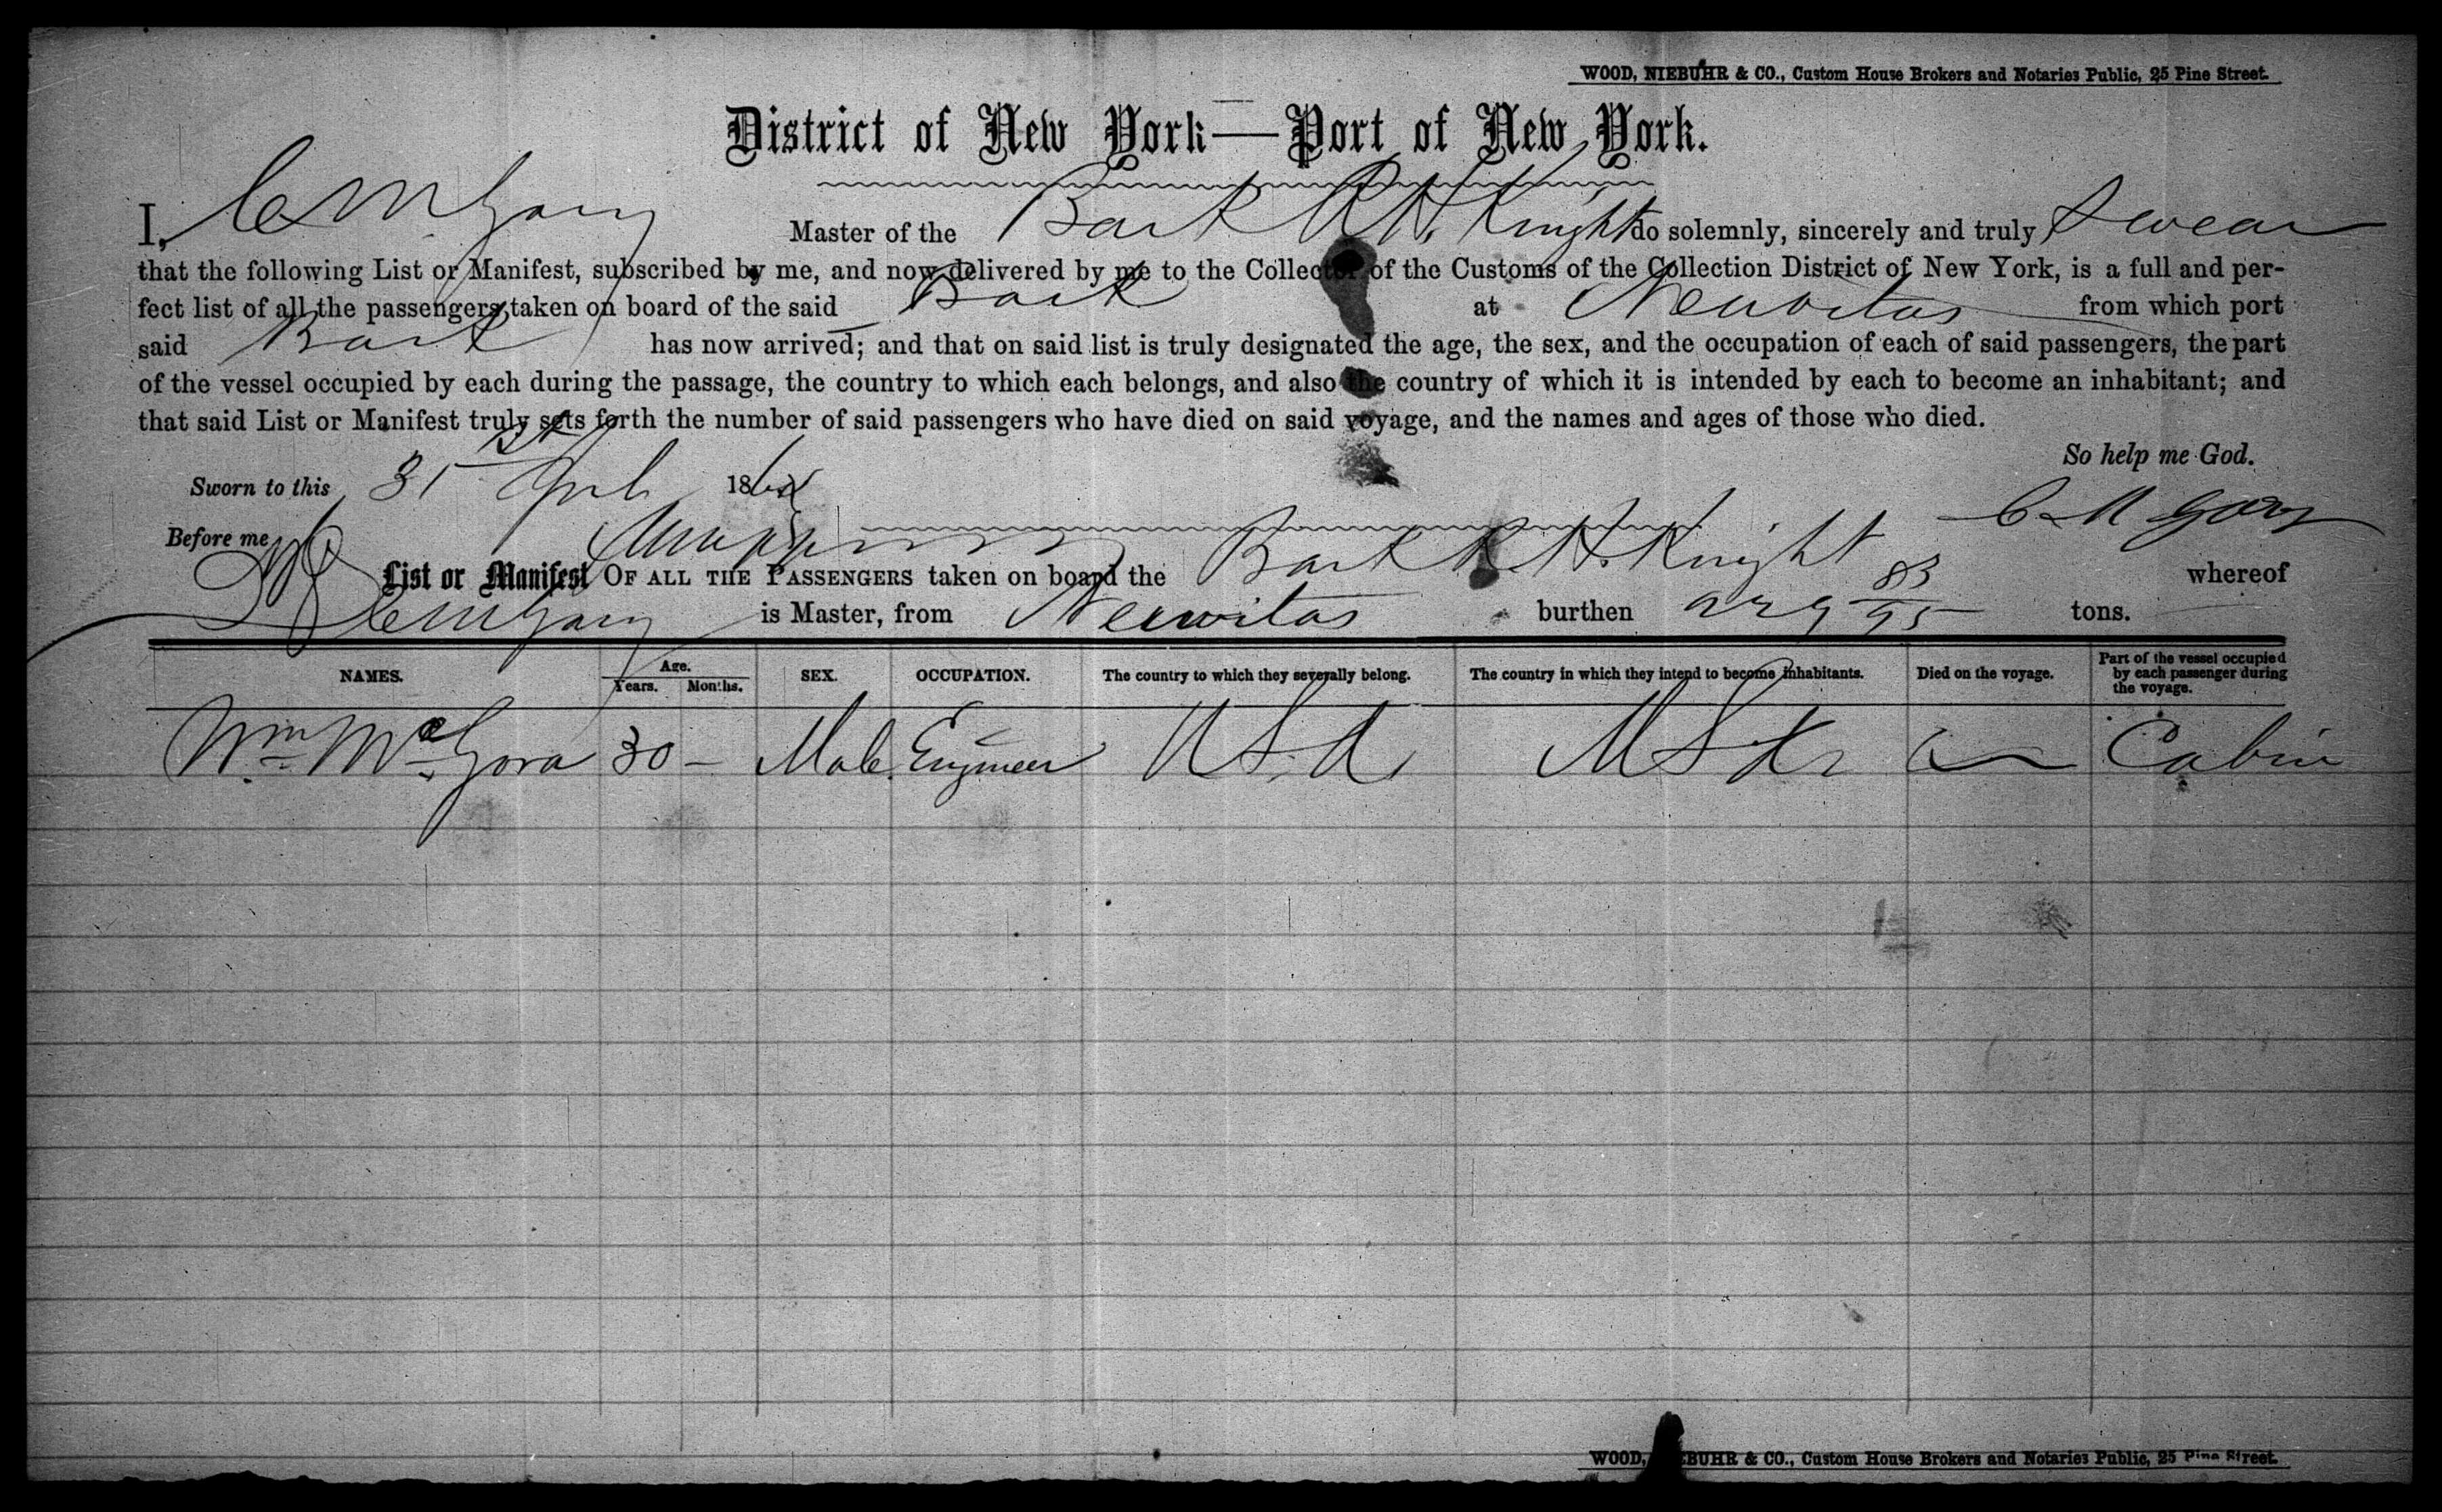 WOOD, NIEBUHR & CO., Custom House Brokers and Notaries Public, 25 Pine Street.
District of New York—Port of New York.
I, C M Gary Master of the Bark R. H. Knight do solemnly, sincerely and truly swear
that the following List or Manifest, subscribed by me, and now delivered by me to the Collector of the Customs of the Collection District of New York, is a full and per-
fect list of all the passengers taken on board of the said Bark at Neuvitas from which port
said Bark has now arrived; and that on said list is truly designated the age, the sex, and the occupation of each of said passengers, the part
of the vessel occupied by each during the passage, the country to which each belongs, and also the country of which it is intended by each to become an inhabitant; and
that said List or Manifest truly sets forth the number of said passengers who have died on said voyage, and the names and ages of those who died.
So help me God.
Sworn to this 31st 186
C M Gary
Before me
List or Manifest OF ALL THE PASSENGERS taken on board the Bark R. H. Knight whereof
C M Gary is Master, from Neuvitas burthen 229 83/95 tons.
NAMES. Age. Years. Months. SEX. OCCUPATION. The country to which they severally belong. The country in which they intend to become inhabitants. Died on the voyage. Part of the vessel occupied by each passenger during the voyage.
Wm McGora 30 – Male Engineer U S. A. U S A Cabin
WOOD, NIEBUHR & CO., Custom House Brokers and Notaries Public, 25 Pine Street.